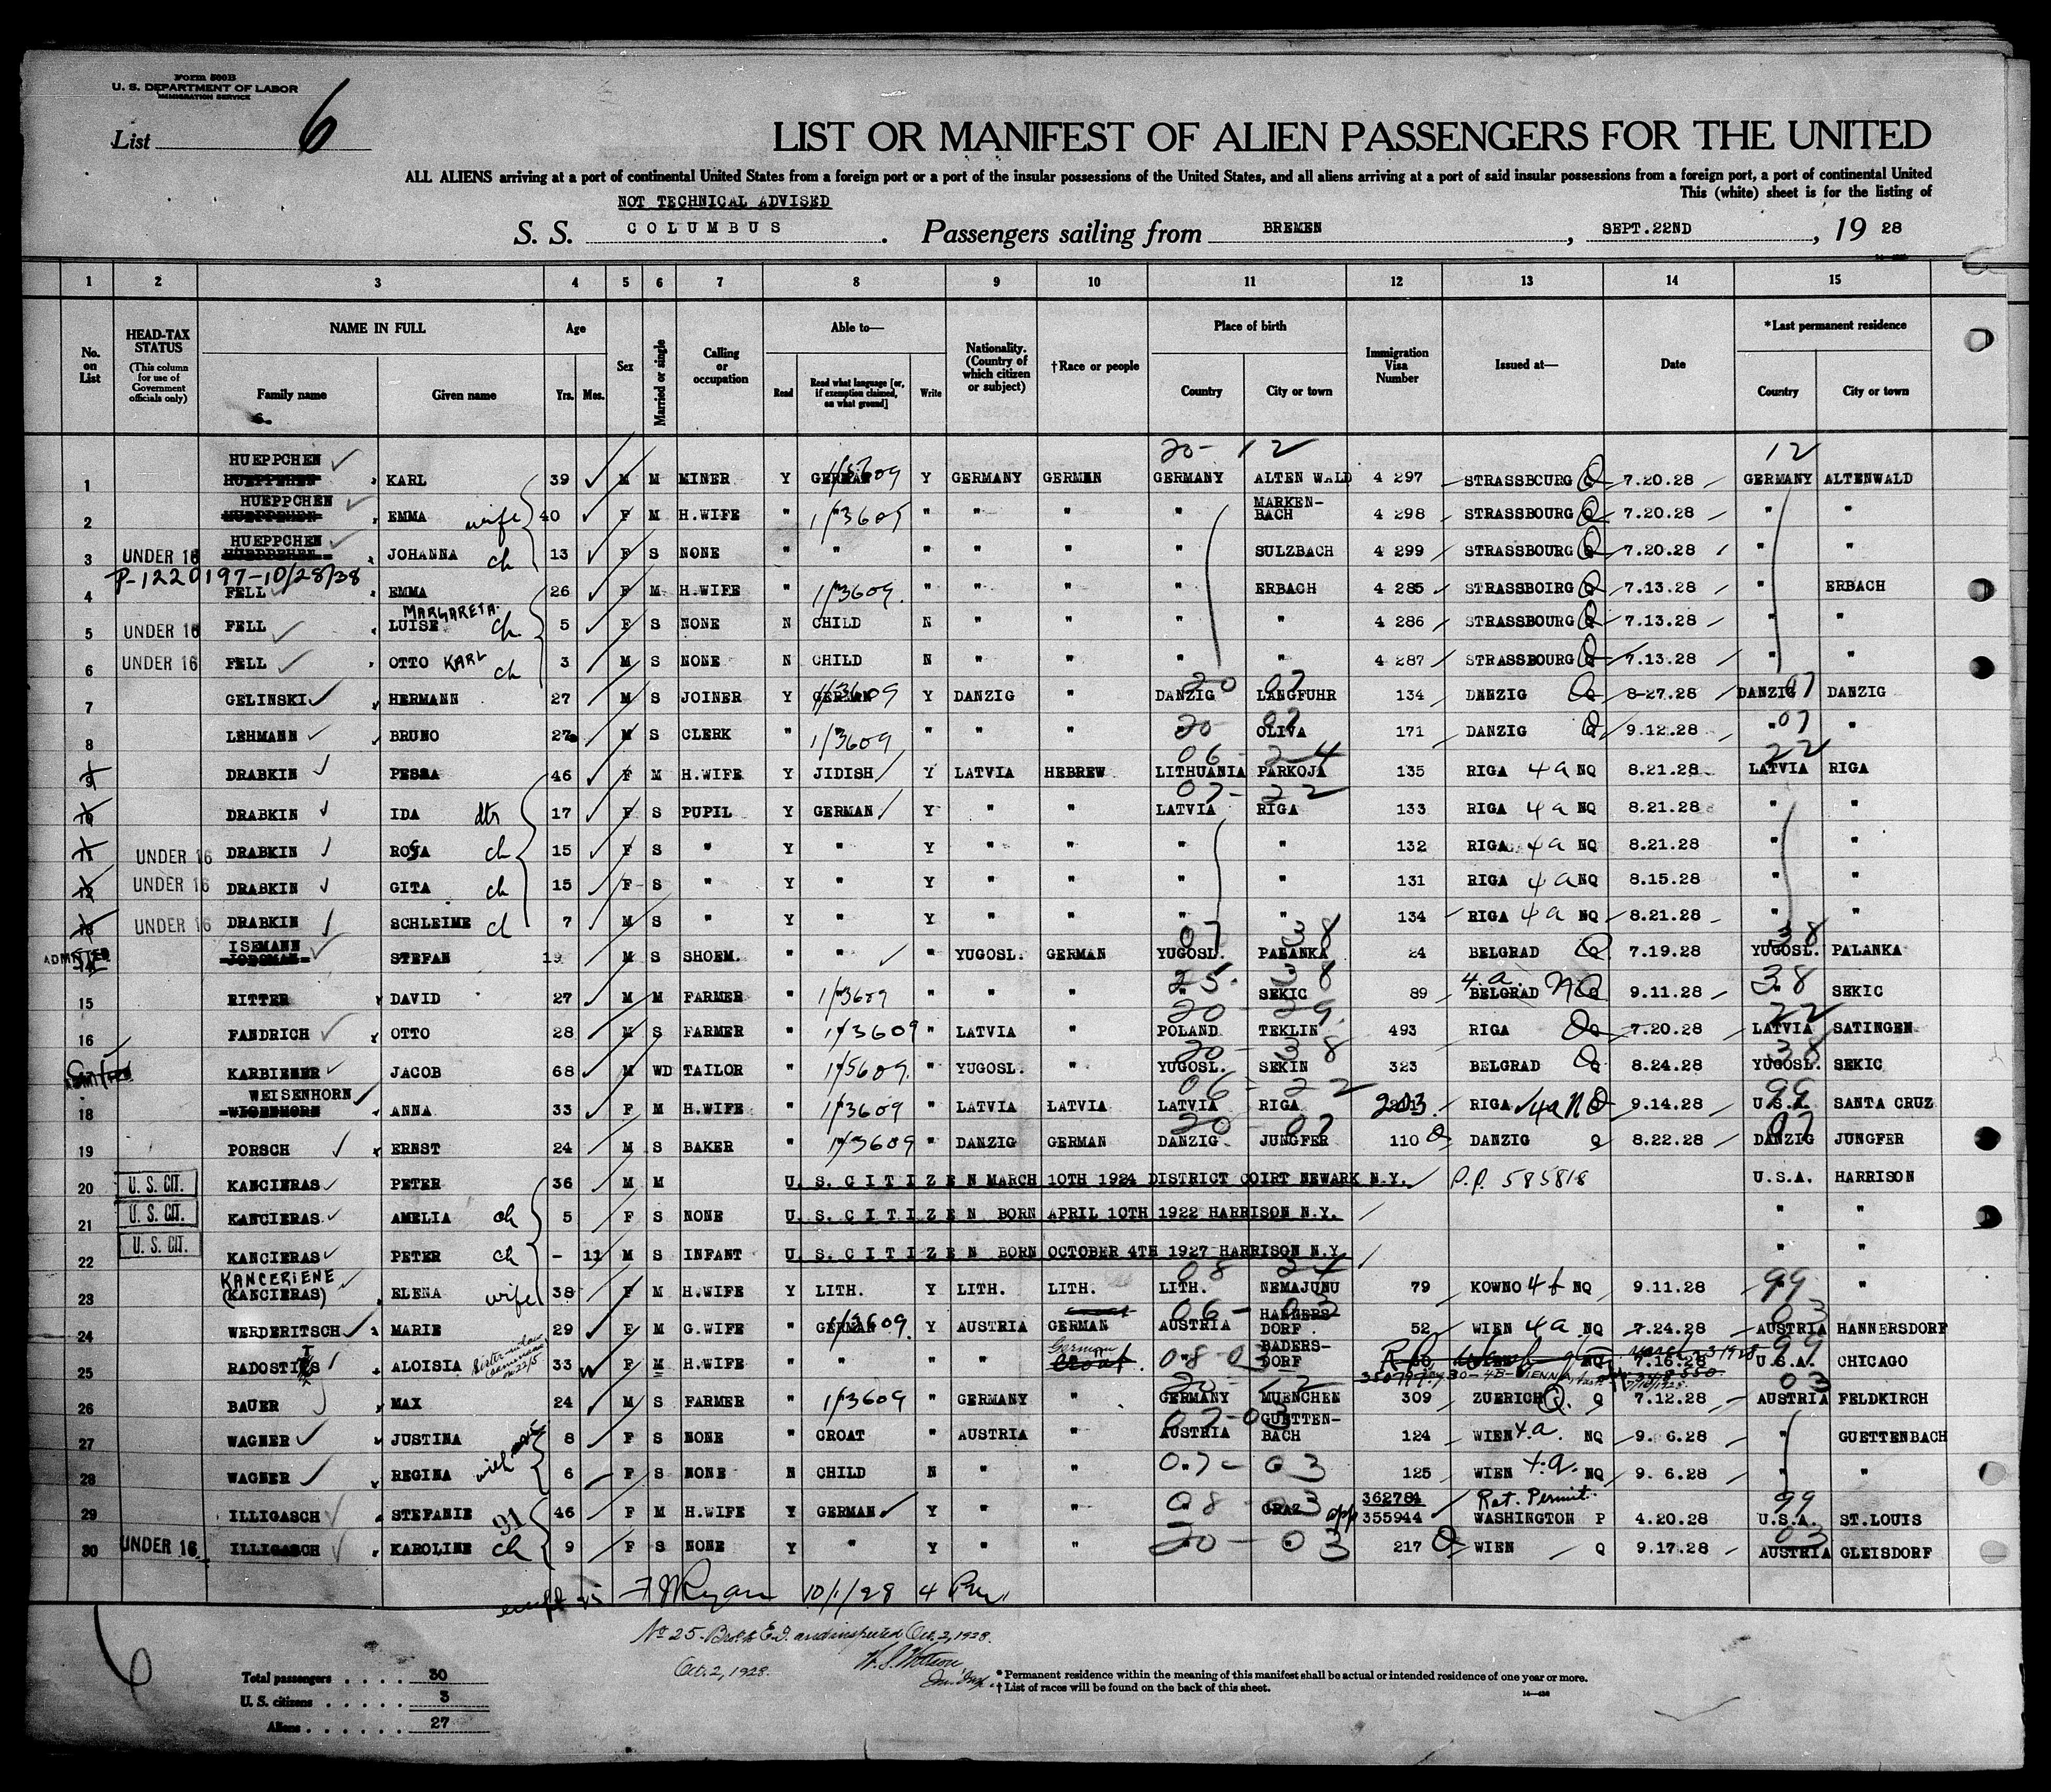 Form 500B
U. S. DEPARTMENT OF LABOR
IMMIGRATION SERVICE
List 6
LIST OR MANIFEST OF ALIEN PASSENGERS FOR THE UNITED
ALL ALIENS arriving at a port of continental United States from a foreign port or a port of the insular possessions of the United States, and all aliens arriving at a port of said insular possessions from a foreign port, a port of continental United
This (white) sheet is for the listing of
NOT TECHNICAL ADVISED
S. S. COLUMBUS. Passengers sailing from BREMEN, SEPT.22ND, 19 28
1 2 3 4 5 6 7 8 9 10 11 12 13 14 15
No. on List
HEAD-TAX STATUS (This column for use of Government officials only)
NAME IN FULL Family name Given name
Age Yrs. Mos.
Sex
Married or single
Calling or occupation
Able to— Read Read what language [or, if exemption claimed, on what ground] Write
Nationality. (Country of which citizen or subject)
†Race or people
Place of birth Country City or town
Immigration Visa Number
Issued at—
Date
*Last permanent residence Country City or town
20- 12 12
HUEPPCHEN
1 KARL 39 M M MINER Y GERMAN Y GERMANY GERMAN GERMANY ALTEN WALD 4 297 STRASSBOURG Q 7.20.28 GERMANY ALTENWALD
HUEPPCHEN
2 EMMA wife 40 F M H.WIFE " 1/3609 " " " " MARKEN-BACH 4 298 STRASSBOURG Q 7.20.28 " "
HUEPPCHEN
3 UNDER 16 JOHANNA ch 13 F S NONE " " " " " " SULZBACH 4 299 STRASSBOURG Q 7.20.28 " "
P-1220197-10/28/38
4 FELL EMMA 26 F M H.WIFE " 1/3609 " " " " ERBACH 4 285 STRASSBOIRG Q 7.13.28 " ERBACH
5 UNDER 16 FELL LUISE MARGARETA ch 5 F S NONE N CHILD N " " " " 4 286 STRASSBOURG Q 7.13.28 " "
6 UNDER 16 FELL OTTO KARL ch 3 M S NONE N CHILD N " " " " 4 287 STRASSBOURG Q 7.13.28 " "
20 07 07
7 GELINSKI HERMANN 27 M S JOINER Y GERMAN 1/3609 Y DANZIG " DANZIG LANGFUHR 134 DANZIG Q 8-27.28 DANZIG DANZIG
8 LEHMANN BRUNO 27 M S CLERK " 1/3609 " " " 20 07 OLIVA 171 DANZIG Q 9.12.28 " 07 "
06-24 22
9 DRABKIN PESSA 46 F M H.WIFE Y JIDISH Y LATVIA HEBREW LITHUANIA PARKOJA 135 RIGA 4a NQ 8.21.28 LATVIA RIGA
07-22
10 DRABKIN IDA dtr 17 F S PUPIL Y GERMAN Y " " LATVIA RIGA 133 RIGA 4a NQ 8.21.28 " "
11 UNDER 16 DRABKIN ROSA ch 15 F S " Y " Y " " " " 132 RIGA 4a NQ 8.21.28 " "
12 UNDER 16 DRABKIN GITA ch 15 F S " Y " Y " " " " 131 RIGA 4a NQ 8.15.28 " "
13 UNDER 16 DRABKIN SCHLEIME ch 7 M S " Y " Y " " " " 134 RIGA 4a NQ 8.21.28 " "
ISEMANN 07 38 38
ADMITTED 14 STEFAN 19 M S SHOEM. " " " YUGOSL. GERMAN YUGOSL. PALANKA 24 BELGRAD Q 7.19.28 YUGOSL. PALANKA
25. 38 4.a. NQ 38
15 RITTER DAVID 27 M M FARMER " 1/3609 " " " " SEKIC 89 BELGRAD 9.11.28 " SEKIC
20 29. 22
16 FANDRICH OTTO 28 M S FARMER " 1/3609 " LATVIA " POLAND TEKLIN 493 RIGA Q 7.20.28 LATVIA SATINGEN
20-38 38
ADMITTED KARBIENER JACOB 68 M WD TAILOR " 1/5609. " YUGOSL. " YUGOSL. SEKIN 323 BELGRAD Q 8.24.28 YUGOSL. SEKIC
WEISENHORN 06-22 99
18 WIGENHORN ANNA 33 F M H.WIFE " 1/3609 " LATVIA LATVIA LATVIA RIGA 203. RIGA 4a NQ 9.14.28 U.S.A. SANTA CRUZ
20-07 07
19 PORSCH ERNST 24 M S BAKER " 1/3609 " DANZIG GERMAN DANZIG JUNGFER 110 Q DANZIG Q 8.22.28 DANZIG JUNGFER
20 U. S. CIT. KANCIERAS PETER 36 M M U.S. CITIZEN MARCH 10TH 1924 DISTRICT COIRT NEWARK N.Y. P.P. 585818 U.S.A. HARRISON
21 U. S. CIT. KANCIERAS AMELIA ch 5 F S NONE U.S. CITIZEN BORN APRIL 10TH 1922 HARRISON N.Y. " "
22 U. S. CIT. KANCIERAS PETER ch - 11 M S INFANT U.S. CITIZEN BORN OCTOBER 4TH 1927 HARRISON N.Y. " "
KANCERIENE 08 24 99
23 (KANCIERAS) ELENA wife 38 F M H.WIFE Y LITH. Y LITH. LITH. LITH. NEMAJUNU 79 KOWNO 4f NQ 9.11.28 "
06-03 03
24 WERDERITSCH MARIE 29 F M G.WIFE " GERMAN 1/3609 Y AUSTRIA GERMAN AUSTRIA HANNERS-DORF 52 WIEN 4a NQ 7.24.28 AUSTRIA HANNERSDORF
25 ALOISIA 33 F M H.WIFE " " " " German Croat. 08-03 BADERS-DORF 7.16.28 U.S.A. CHICAGO
20-12 03
26 BAUER MAX 24 M S FARMER " 1/3609 " GERMANY " GERMANY MUENCHEN 309 ZUERICH Q. Q 7.12.28 AUSTRIA FELDKIRCH
07-03
27 WAGNER JUSTINA 8 F S NONE " CROAT " AUSTRIA " AUSTRIA GUETTEN-BACH 124 WIEN 4.a. NQ 9. 6.28 " GUETTENBACH
28 WAGNER REGINA with 6 F S NONE N CHILD N " " 07-03 125 WIEN 4.a. NQ 9. 6.28 " "
362784 Ret. Permit. 99
29 ILLIGASCH STEFANIE 91 46 F M H.WIFE Y GERMAN Y " " 08-03 GRAZ 355944 WASHINGTON P 4.20.28 U.S.A. ST.LOUIS
30 UNDER 16 ILLIGASCH KAROLINE ch 9 F S NONE Y " Y " " 20-03 217 Q WIEN Q 9.17.28 03 AUSTRIA GLEISDORF
except 25 F J Ryan 10/1/28 4 Pm
No 25 - E.I. and inspected Oct. 2, 1928.
Oct. 2, 1928. W. S. Watson
Total passengers 30
U. S. citizens 3
Aliens 27
*Permanent residence within the meaning of this manifest shall be actual or intended residence of one year or more.
†List of races will be found on the back of this sheet.